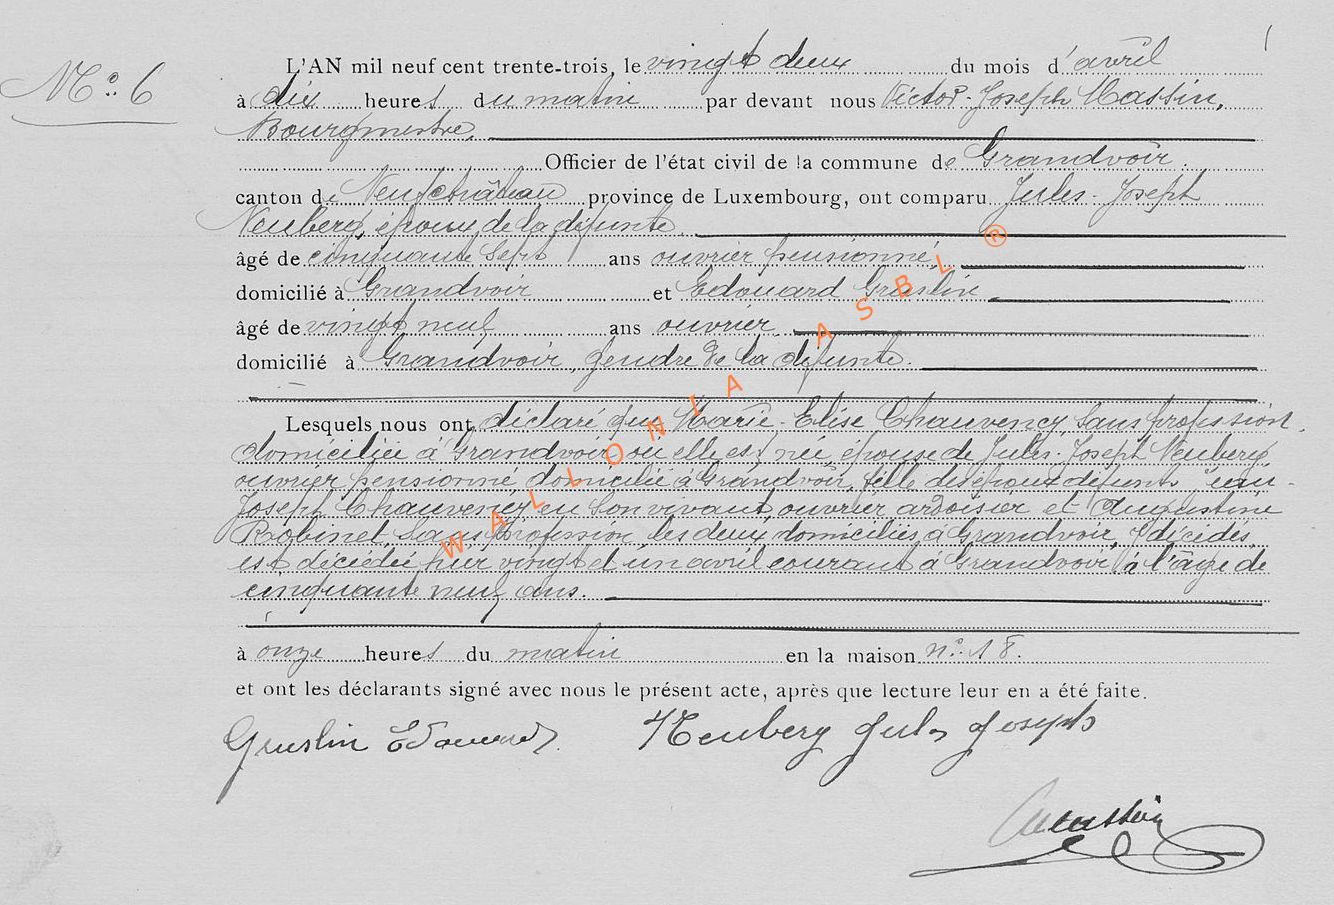 N° 6
L'AN mil neuf cent trente-trois, le vingt deux du mois d'avril
à dix heures du matin par devant nous Victor-Joseph Massin,
Bourgmestre,
Officier de l'état civil de la commune de Grandvoir.
canton de Neufchâteau province de Luxembourg, ont comparu Jules-Joseph
Neuberg, époux de la défunte
âgé de cinquante sept ans ouvrier pensionné,
domicilié à Grandvoir et Edouard Gruslin
âgé de vingt neuf ans ouvrier
domicilié à Grandvoir, gendre de la défunte.
Lesquels nous ont déclaré que Marie-Elise Chauvency, sans profession,
domiciliée à Grandvoir où elle est née épouse de Jules-Joseph Neuberg,
ouvrier pensionné domicilié à Grandvoir, fille des époux défunts Jean-
Joseph Chauvency en son vivant ouvrier ardoisier et Augustine
Robinet, sans profession, les deux domiciliés à Grandvoir, y décédés,
est décédée hier vingt et un avril courant à Grandvoir à l'âge de
cinquante neuf ans.
à onze heures du matin en la maison n° 18.
et ont les déclarants signé avec nous le présent acte, après que lecture leur en a été faite.
Gruslin Edouard. Neuberg Jules Joseph
Massin
WALLONIA ASBL ®